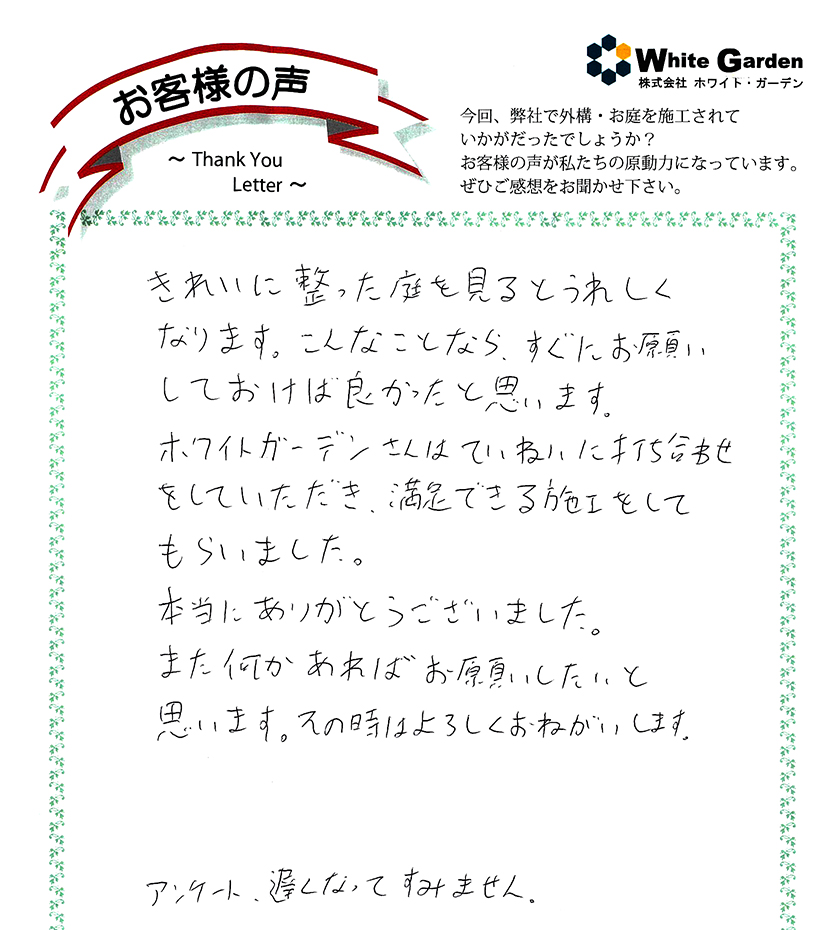 お客様の声
～ Thank You
Letter ～
White Garden
株式会社 ホワイト・ガーデン
今回、弊社で外構・お庭を施工されて
いかがだったでしょうか？
お客様の声が私たちの原動力になっています。
ぜひご感想をお聞かせ下さい。
きれいに整った庭を見るとうれしく
なります。こんなことなら、すぐにお願い
しておけば良かったと思います。
ホワイトガーデンさんはていねいに打ち合わせ
をしていただき、満足できる施工をして
もらいました。
本当にありがとうございました。
また何かあればお願いしたいと
思います。その時はよろしくおねがいします。
アンケート、遅くなってすみません。